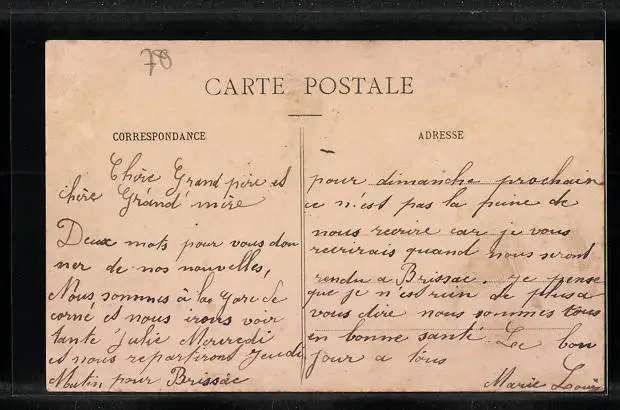 78
CARTE POSTALE
CORRESPONDANCE
Chère Grand père et
chère Grand mère
Deux mots pour vous don
ner de nos nouvelles,
Nous sommes à la gare de
corné et nous irons voir
tante Julie Mercredi
et nous repartirons Jeudi
Matin pour Brissac
ADRESSE
pour dimanche prochain
ce n'est pas la peine de
nous recrire car je vous
recrirais quand nous seront
rendu a Brissac. je pense
que je n'est rien de plus a
vous dire nous sommes tous
en bonne santé. Le bon
jour a tous
Marie Louise